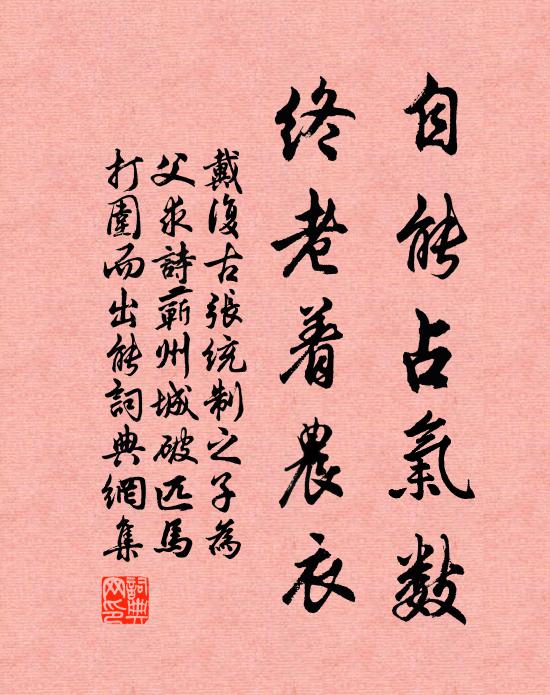 自能占氣數
終老着農衣
戴復古張統制之子為
父求詩蘄州城破匹馬
打圍而出能詞典網集
詞典網印